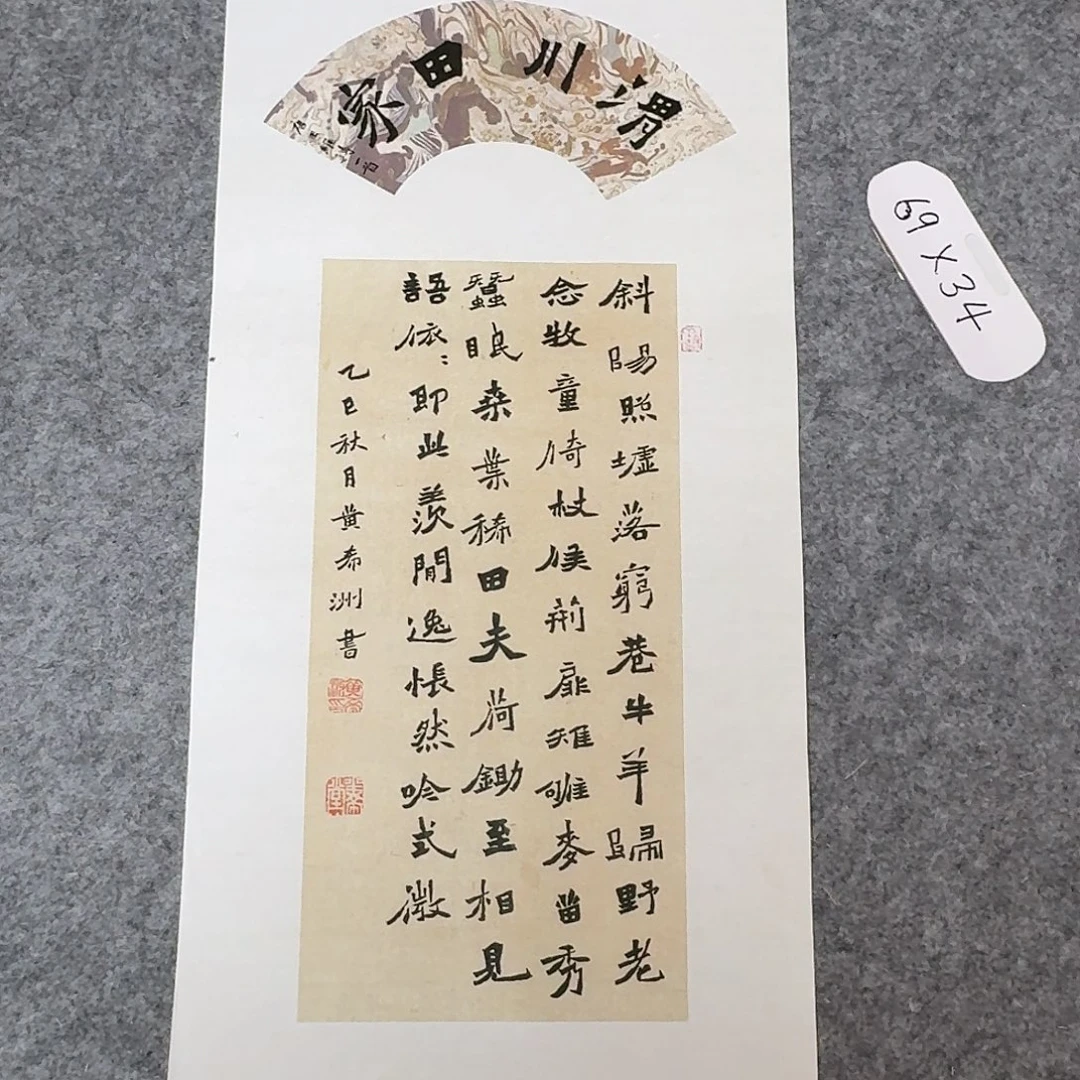 渭川田家
唐王維詩一首
斜陽照墟落窮巷牛羊歸野老
念牧童倚杖候荊扉雉雊麥苗秀
蠶眠桑葉稀田夫荷鋤至相見
語依:即此羨閒逸悵然吟式微
乙巳秋月黄希洲書
69×34